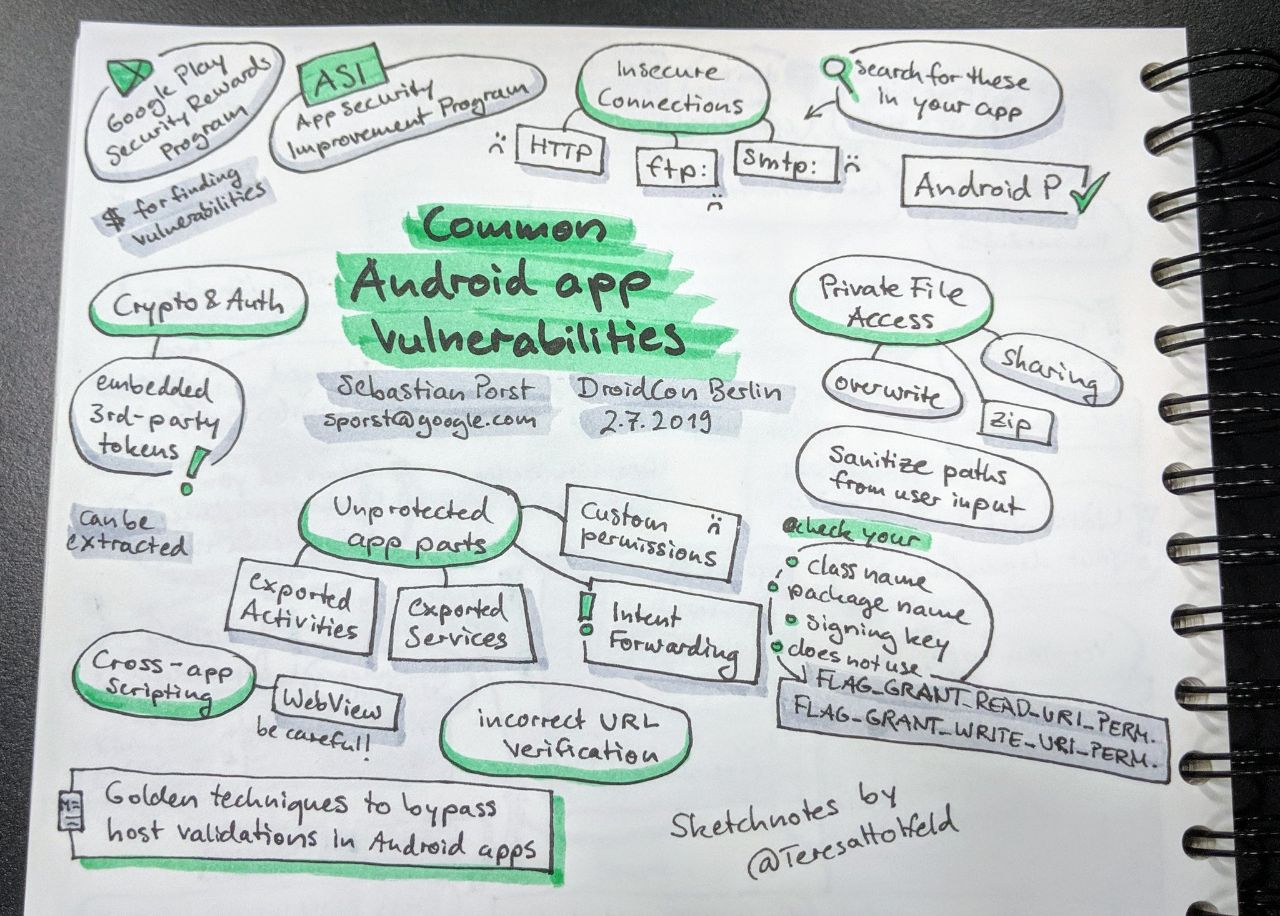 Google Play
Security Rewards
Program
$ for finding
vulnerabilities
ASI
App Security
Improvement Program
Insecure
Connections
HTTP
ftp:
smtp:
search for these
in your app
Android P
Common
Android app
vulnerabilities
Sebastian Porst
sporst@google.com
DroidCon Berlin
2.7.2019
Crypto & Auth
embedded
3rd-party
tokens !
can be
extracted
Private File
Access
overwrite
sharing
zip
Sanitize paths
from user input
Unprotected
app parts
Custom
permissions
exported
Activities
exported
Services
! Intent
Forwarding
check your
• class name
• package name
• signing key
• does not use
FLAG_GRANT_READ_URI_PERM.
FLAG_GRANT_WRITE_URI_PERM.
Cross-app
Scripting
WebView
be careful!
incorrect URL
Verification
M=
Golden techniques to bypass
host validations in Android apps
Sketchnotes by
@TeresaHolfeld